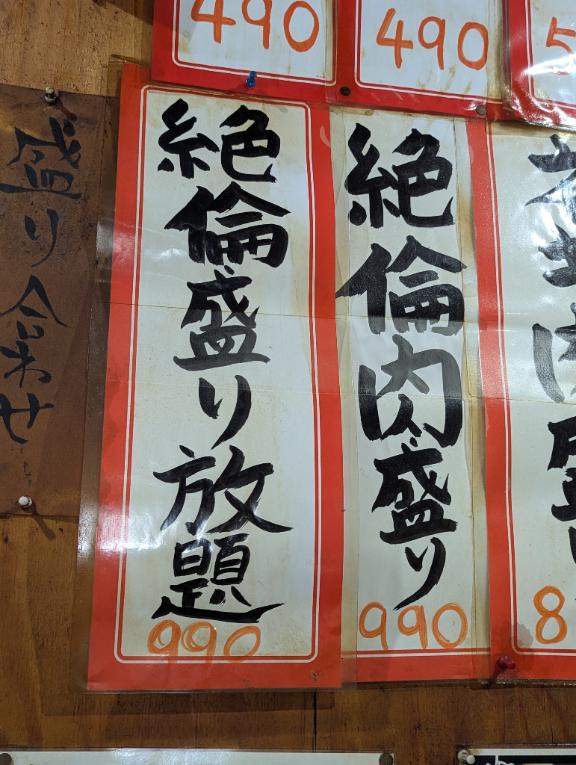 490
490
絶倫盛り放題
990
絶倫肉盛り
990
8
盛り合わせ